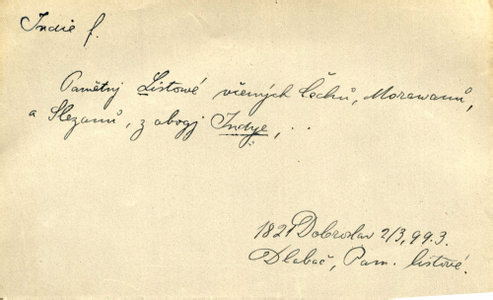 Indie f.
Pamětnj Listowé včených Čechů, Morawanů,
a Slezanů, z obogj Indye, . .
1821 Dobroslav 2/3, 99.3.
Dlabač, Pam. listové.